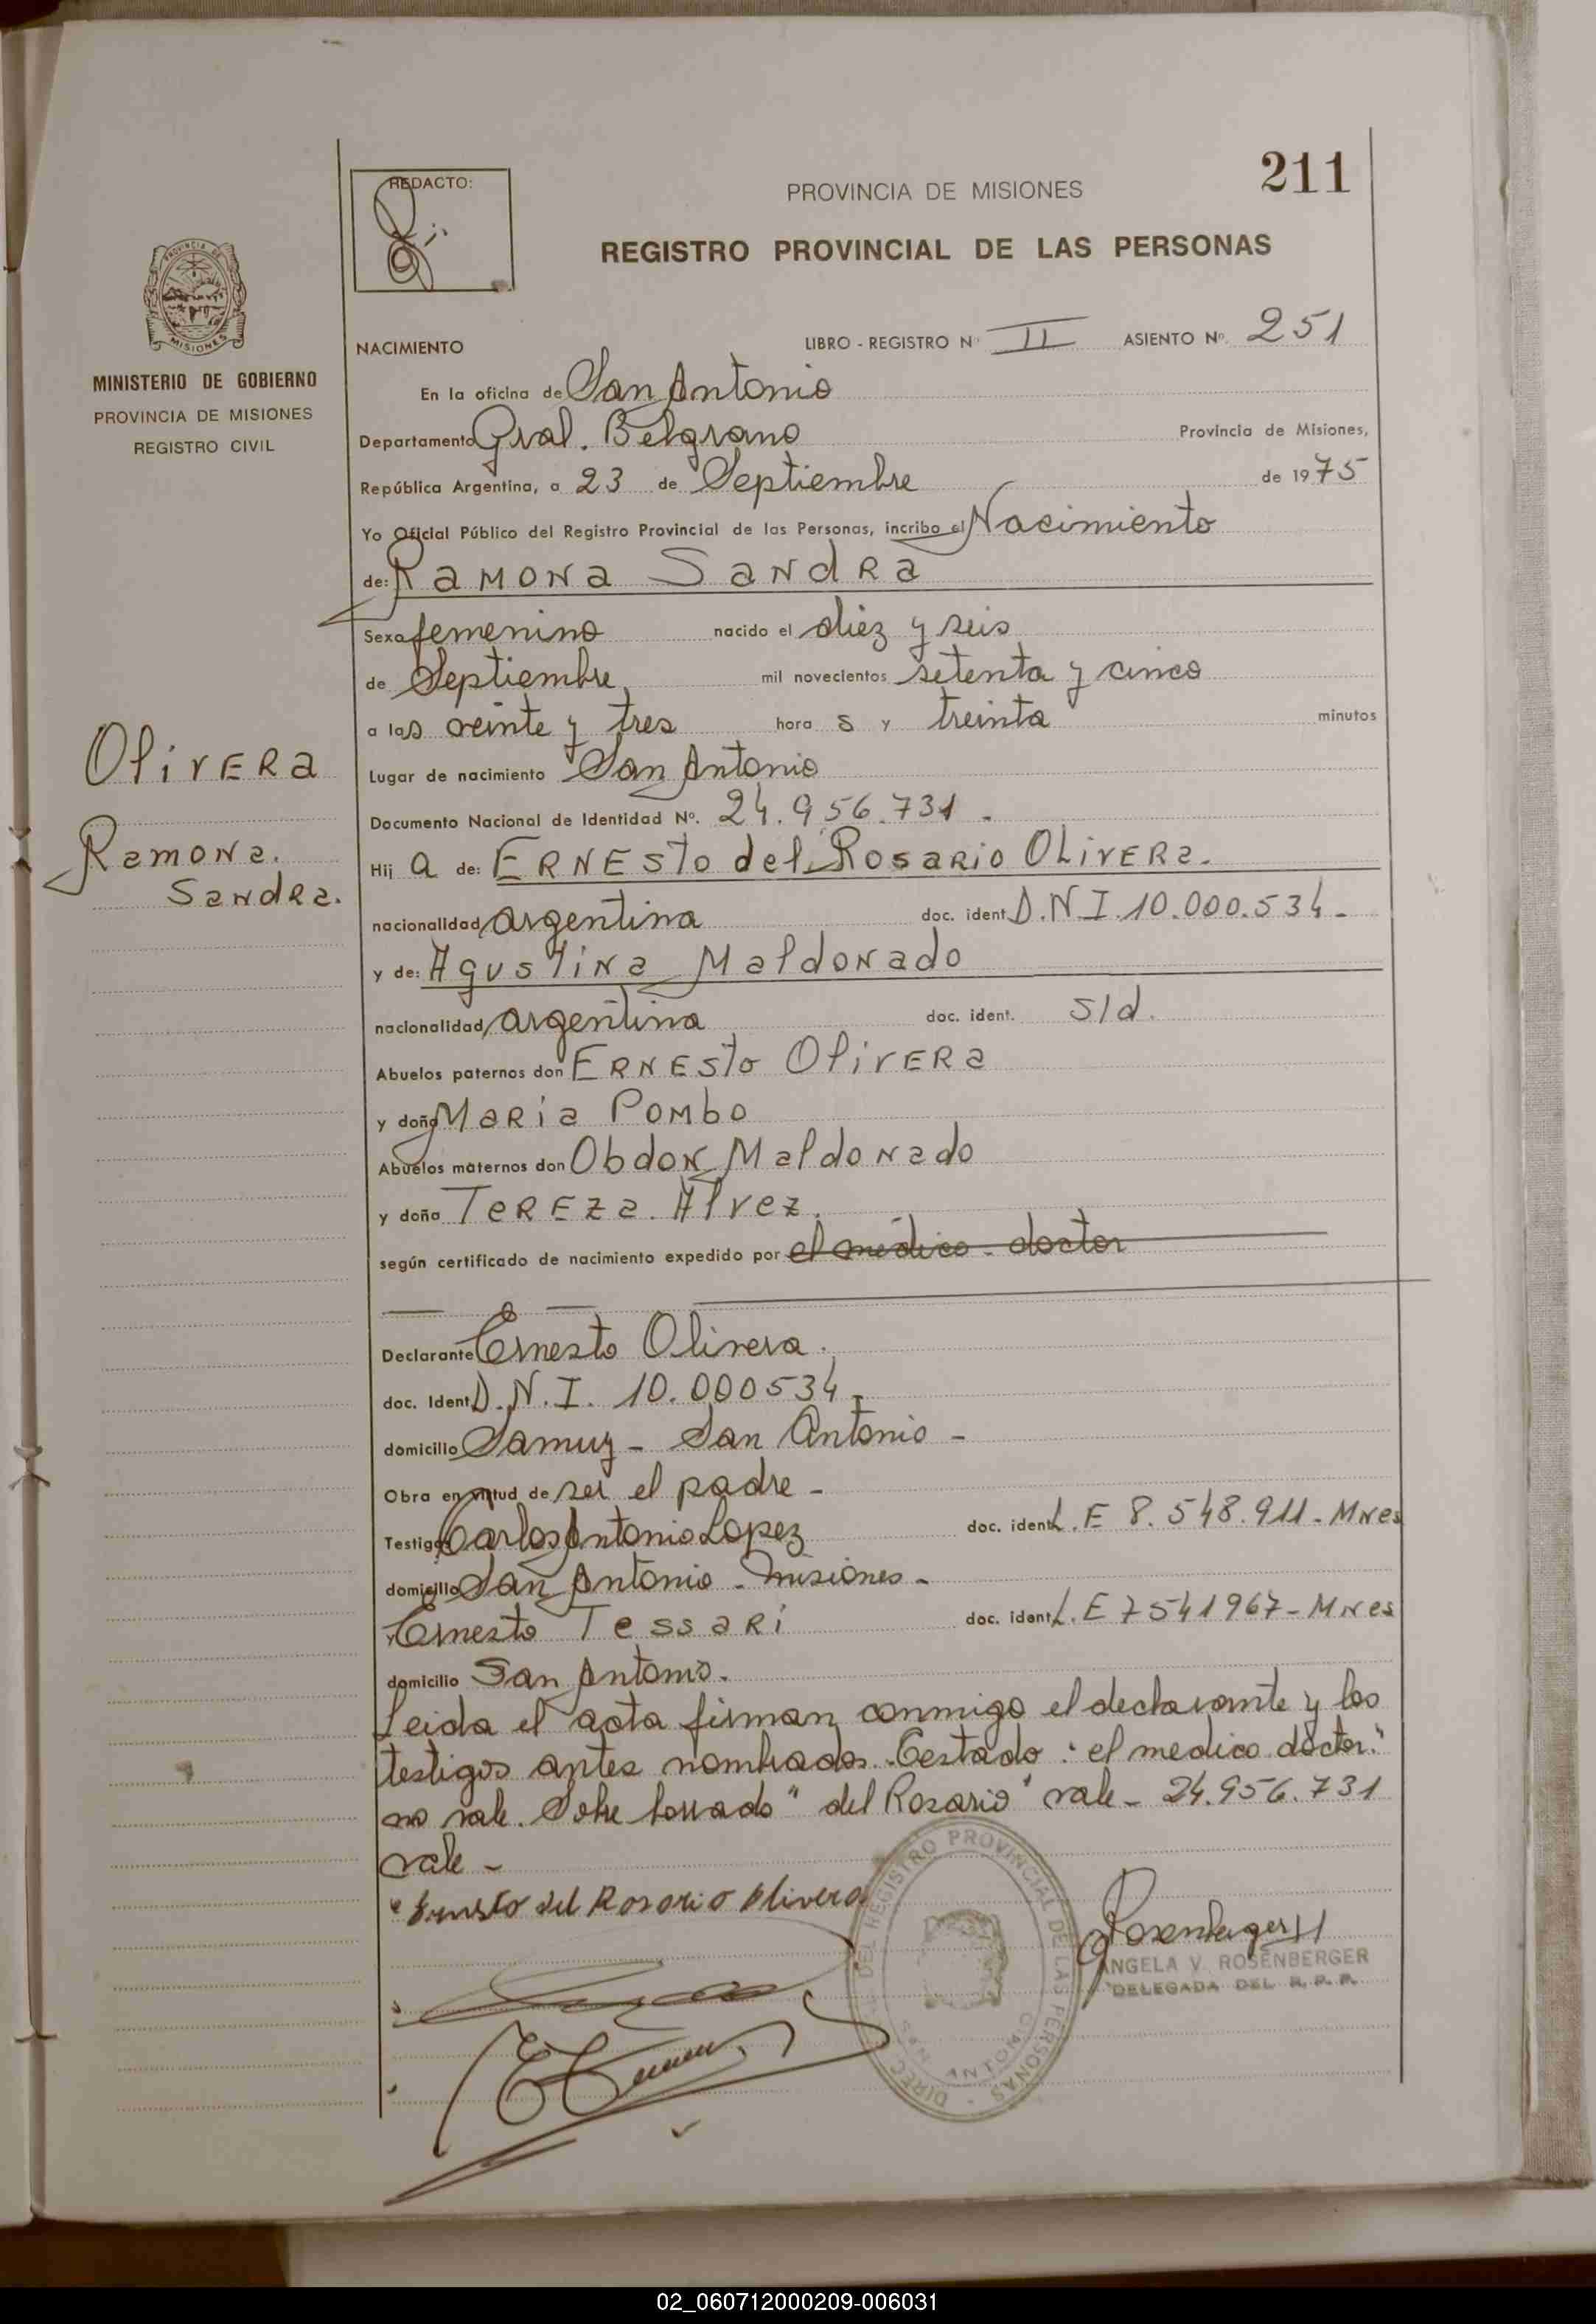 211
REDACTO:
PROVINCIA DE MISIONES
REGISTRO PROVINCIAL DE LAS PERSONAS
PROVINCIA DE
MISIONES
MINISTERIO DE GOBIERNO
PROVINCIA DE MISIONES
REGISTRO CIVIL
NACIMIENTO LIBRO - REGISTRO Nº II ASIENTO Nº. 251
En la oficina de San Antonio
Departamento Gral. Belgrano Provincia de Misiones,
República Argentina, a 23 de Septiembre de 1975
Yo Oficial Público del Registro Provincial de las Personas, incribo el Nacimiento
de: Ramona Sandra
Sexo femenino nacido el diez y seis
de Septiembre mil novecientos setenta y cinco
a las veinte y tres hora s y treinta minutos
Olivera
Ramona.
Sandra.
Lugar de nacimiento San Antonio
Documento Nacional de Identidad Nº. 24.956.731.
Hij a de: Ernesto del Rosario Olivera.
nacionalidad argentina doc. ident. D.N.I. 10.000.534-
y de: Agustina Maldonado
nacionalidad argentina doc. ident. s/d.
Abuelos paternos don Ernesto Olivera
y doña Maria Pombo
Abuelos maternos don Obdon Maldonado
y doña Tereza Alvez.
según certificado de nacimiento expedido por el médico - doctor
Declarante Ernesto Olivera.
doc. Ident. D.N.I. 10.000534-
domicilio Samuy - San Antonio -
Obra en virtud de ser el padre -
Testigos Carlos Antonio Lopez doc. ident. L.E 8.548.911-Mnes
domicilio San Antonio - misiones -
y Ernesto Tessari doc. ident. L.E 7541967-Mnes
domicilio San Antonio.
Leida el acta firman conmigo el declarante y los
testigos antes nombrados. Testado: "el medico doctor."
no vale. Sobre borrado "del Rosario" vale - 24.956.731
vale -
Ernesto del Rosario Olivera
DIREC. DEL REGISTRO PROVINCIAL DE LAS PERSONAS -
SAN ANTONIO
Rosenberger
ANGELA V. ROSENBERGER
DELEGADA DEL R.P.P.
02_060712000209-006031